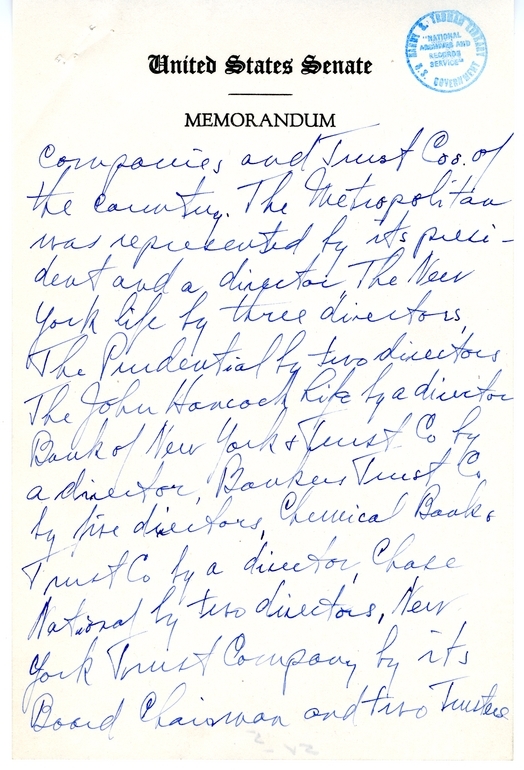 United States Senate
MEMORANDUM
HARRY S. TRUMAN LIBRARY
"NATIONAL
ARCHIVES AND
RECORDS
SERVICE"
U.S. GOVERNMENT
Companies and Trust Cos. of
the country. The Metropolitan
was represented by its presi-
dent and a director, The New
York life by three directors,
The Prudential by two directors
The John Hancock life by a director
Bank of New York & Trust Co by
a director, Bankers Trust Co.
by five directors, Chemical Bank &
Trust Co by a director, Chase
National by two directors, New
York Trust Company by its
Board Chairman and two Trustees